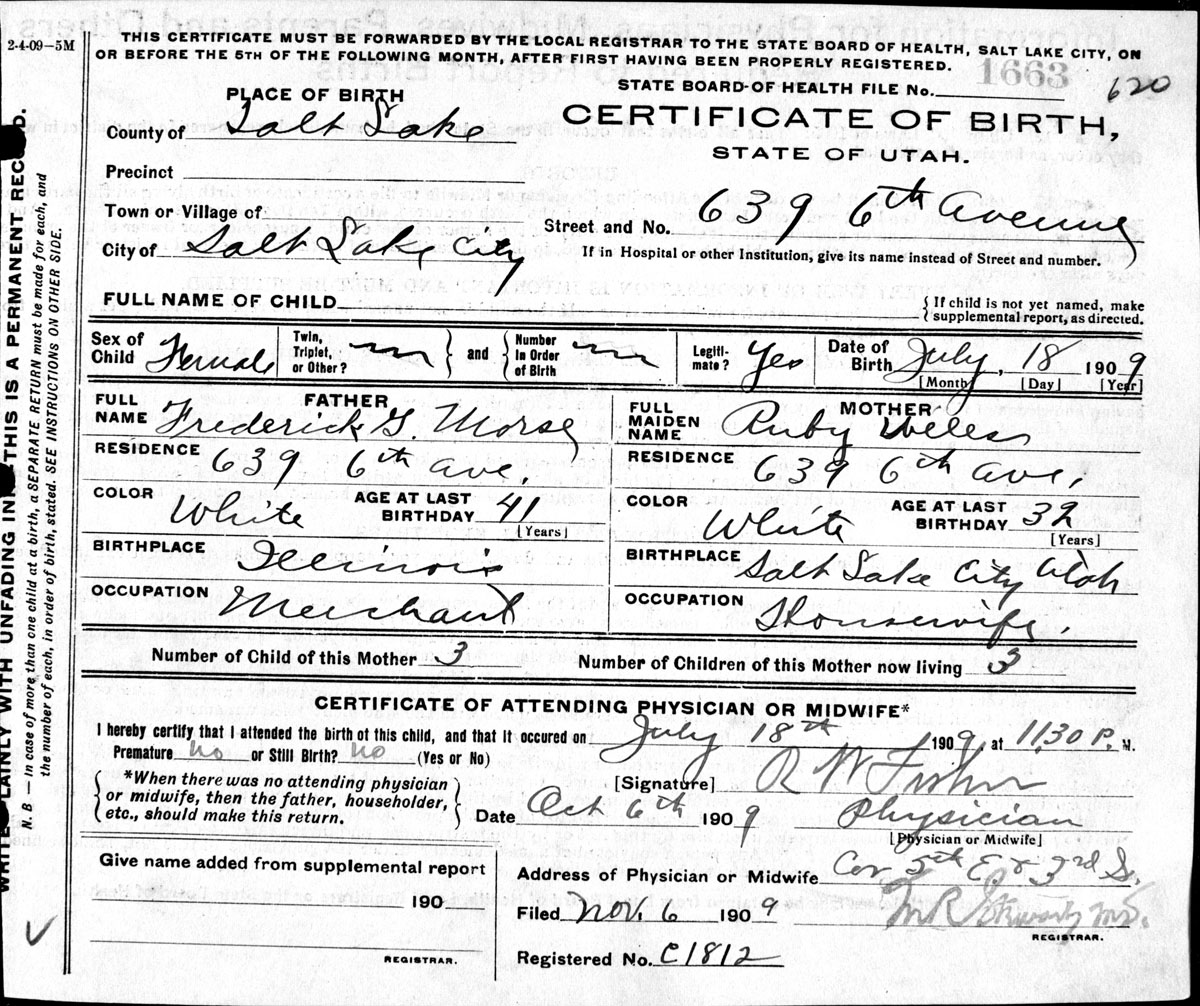 2-4-09-5M
THIS CERTIFICATE MUST BE FORWARDED BY THE LOCAL REGISTRAR TO THE STATE BOARD OF HEALTH, SALT LAKE CITY, ON
OR BEFORE THE 5TH OF THE FOLLOWING MONTH, AFTER FIRST HAVING BEEN PROPERLY REGISTERED.
1663
620
STATE BOARD OF HEALTH FILE No.
PLACE OF BIRTH
CERTIFICATE OF BIRTH,
STATE OF UTAH.
County of Salt Lake
Precinct
Town or Village of
Street and No. 639 6th Avenue
City of Salt Lake City
If in Hospital or other Institution, give its name instead of Street and number.
FULL NAME OF CHILD
{ If child is not yet named, make
supplemental report, as directed.
Sex of Child Female
Twin, Triplet, or Other?
and
Number in Order of Birth
Legiti-mate? Yes
Date of Birth July 18 1909
[Month] [Day] [Year]
FATHER
FULL NAME Frederick G. Morse
RESIDENCE 639 6th Ave,
COLOR White AGE AT LAST BIRTHDAY 41
[Years]
BIRTHPLACE Illinois
OCCUPATION Merchant
MOTHER
FULL MAIDEN NAME Ruby Welles
RESIDENCE 639 6th Ave,
COLOR White AGE AT LAST BIRTHDAY 32
[Years]
BIRTHPLACE Salt Lake City Utah
OCCUPATION Housewife,
Number of Child of this Mother 3 Number of Children of this Mother now living 3
CERTIFICATE OF ATTENDING PHYSICIAN OR MIDWIFE*
I hereby certify that I attended the birth of this child, and that it occured on July 18th 1909, at 11,30 P. M.
Premature no or Still Birth? no (Yes or No)
*When there was no attending physician
or midwife, then the father, householder,
etc., should make this return.
[Signature] R W Fisher
Date Oct 6th 1909 Physician
[Physician or Midwife]
Give name added from supplemental report
190
REGISTRAR.
Address of Physician or Midwife Cor 5th E & 3rd So.
Filed Nov. 6 1909 M.D.
REGISTRAR.
Registered No. C1812
LAINLY WITH UNFADING IN THIS IS A PERMANENT REC D.
N. B — In case of more than one child at a birth, a SEPARATE RETURN must be made for each, and
the number of each, in order of birth, stated. SEE INSTRUCTIONS ON OTHER SIDE.